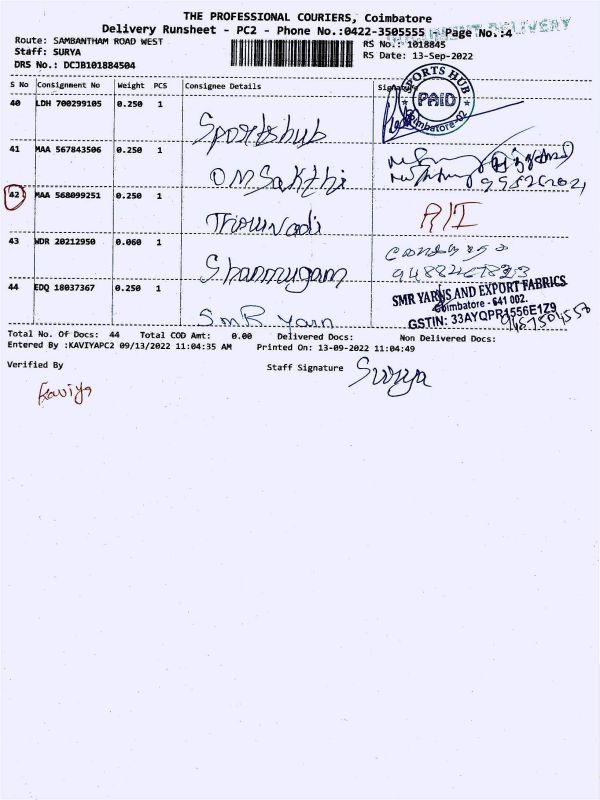 THE PROFESSIONAL COURIERS, Coimbatore
Delivery Runsheet - PC2 - Phone No.:0422-3505555 Page No.:4
DELIVERY
Route: SAMBANTHAM ROAD WEST
RS No.: 1018845
Staff: SURYA
RS Date: 13-Sep-2022
DRS No.: DCJB101884504
S No Consignment No Weight PCS Consignee Details Signature
SPORTS HUB
PAID
Coimbatore-02
40 LDH 700299105 0.250 1
Sportshub
41 MAA 567843506 0.250 1
OM Sakthi
42 MAA 568099251 0.250 1
Thiruvadi
R/I
43 WDR 20212950 0.060 1
Shanmugam
44 EDQ 18037367 0.250 1
SMR Yarn
SMR YARNS AND EXPORT FABRICS
Coimbatore - 641 002.
GSTIN: 33AYQPR1556E1Z9
Total No. Of Docs: 44 Total COD Amt: 0.00 Delivered Docs: Non Delivered Docs:
Entered By :KAVIYAPC2 09/13/2022 11:04:35 AM Printed On: 13-09-2022 11:04:49
Verified By
Staff Signature Surya
Kaviya